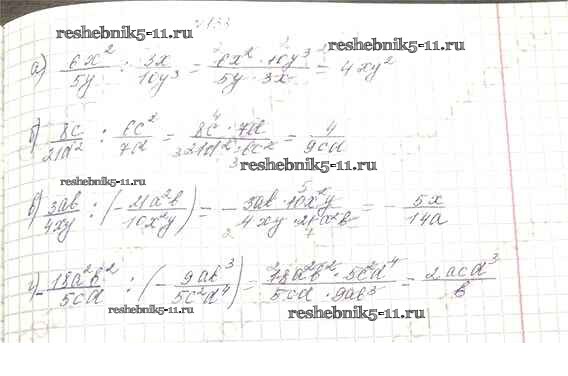 №133
reshebnik5-11.ru
reshebnik5-11.ru
а) 6x²/5y : 3x/10y³ = 6x² · 10y³ / 5y · 3x = 4xy²
reshebnik5-11.ru
reshebnik5-11.ru
б) 8c/21d² : 6c²/7d = 8c · 7d / 21d² · 6c² = 4/9cd
reshebnik5-11.ru
reshebnik5-11.ru
в) 3ab/4xy : (- 21a²b/10x²y) = - 3ab · 10x²y / 4xy · 21a²b = - 5x/14a
г) - 18a²b²/5cd : (- 9ab³/5c²d⁴) = 18a²b² · 5c²d⁴ / 5cd · 9ab³ = 2acd³/b
reshebnik5-11.ru
reshebnik5-11.ru